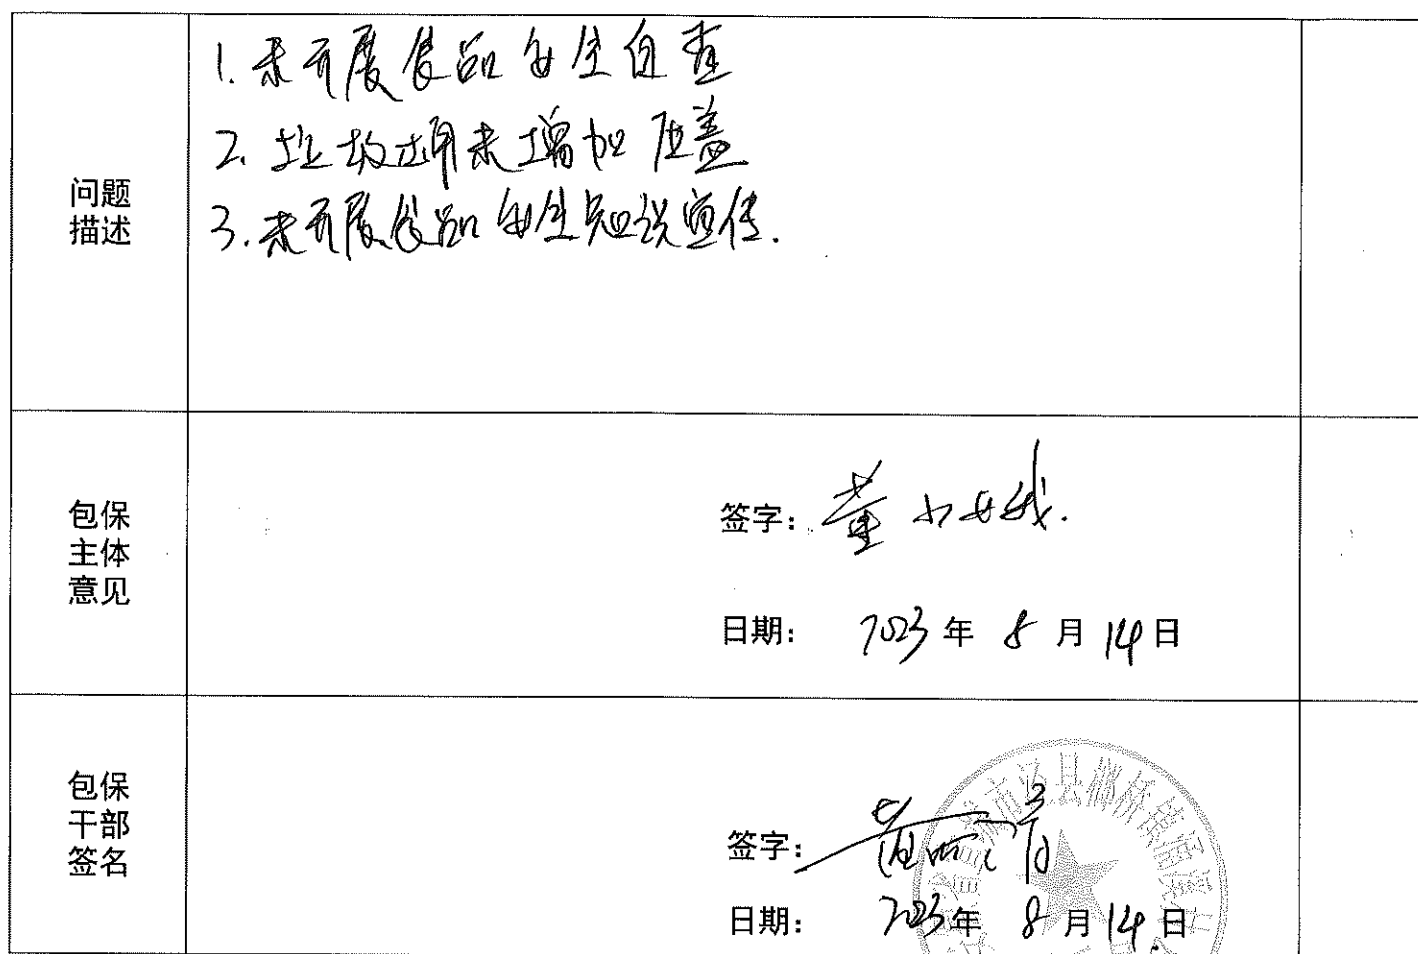 问题
描述
1. 未开展食品安全自查
2. 垃圾桶未增加压盖
3. 未开展食品安全知识宣传.
包保
主体
意见
签字: 董小
日期: 2023 年 8 月 14 日
包保
干部
签名
签字:
日期: 2023 年 8 月 14 日
省宣城市泾县榔桥镇涌溪